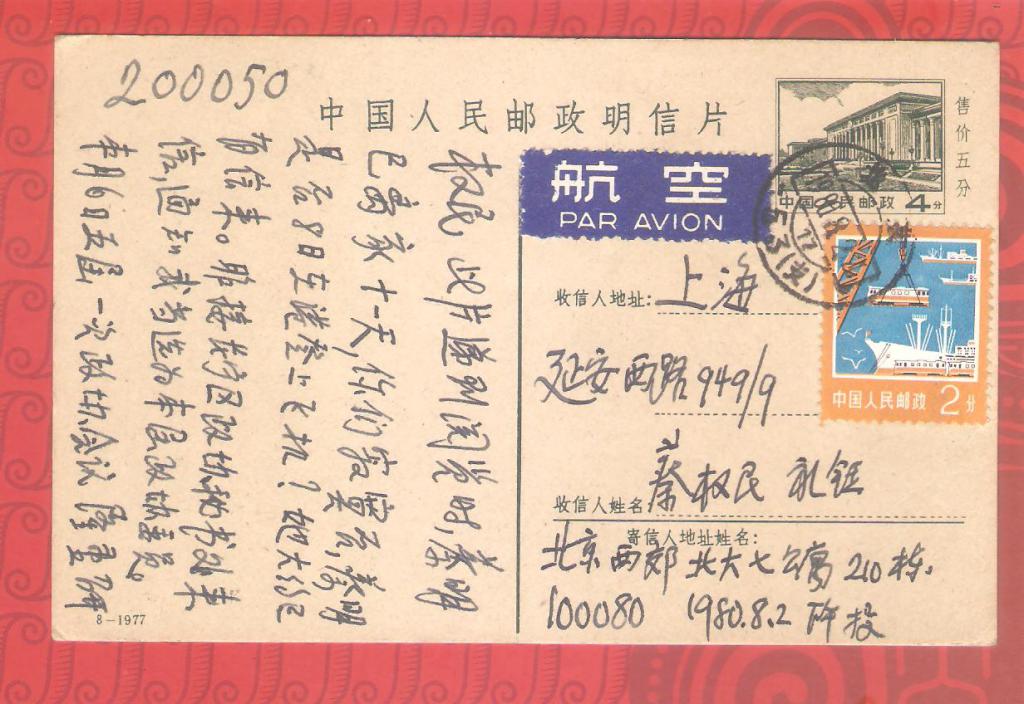 200050
中国人民邮政明信片
售价五分
中国人民邮政 4分
航空
PAR AVION
中国人民邮政 2分
收信人地址:上海
延安西路949/9
收信人姓名 蔡权民 礼钰
寄信人地址姓名:
北京西郊北大七公寓210栋.
100080 1980.8.2
权民 此片遞到阅览时,蔡明
已离京十一天,你们
是否8日左搭上飞机?她大约
有信来。昨接我区政协秘书处来
信,通知我当选为本区政协委员。
本月6日五届一次政协会议
8-1977